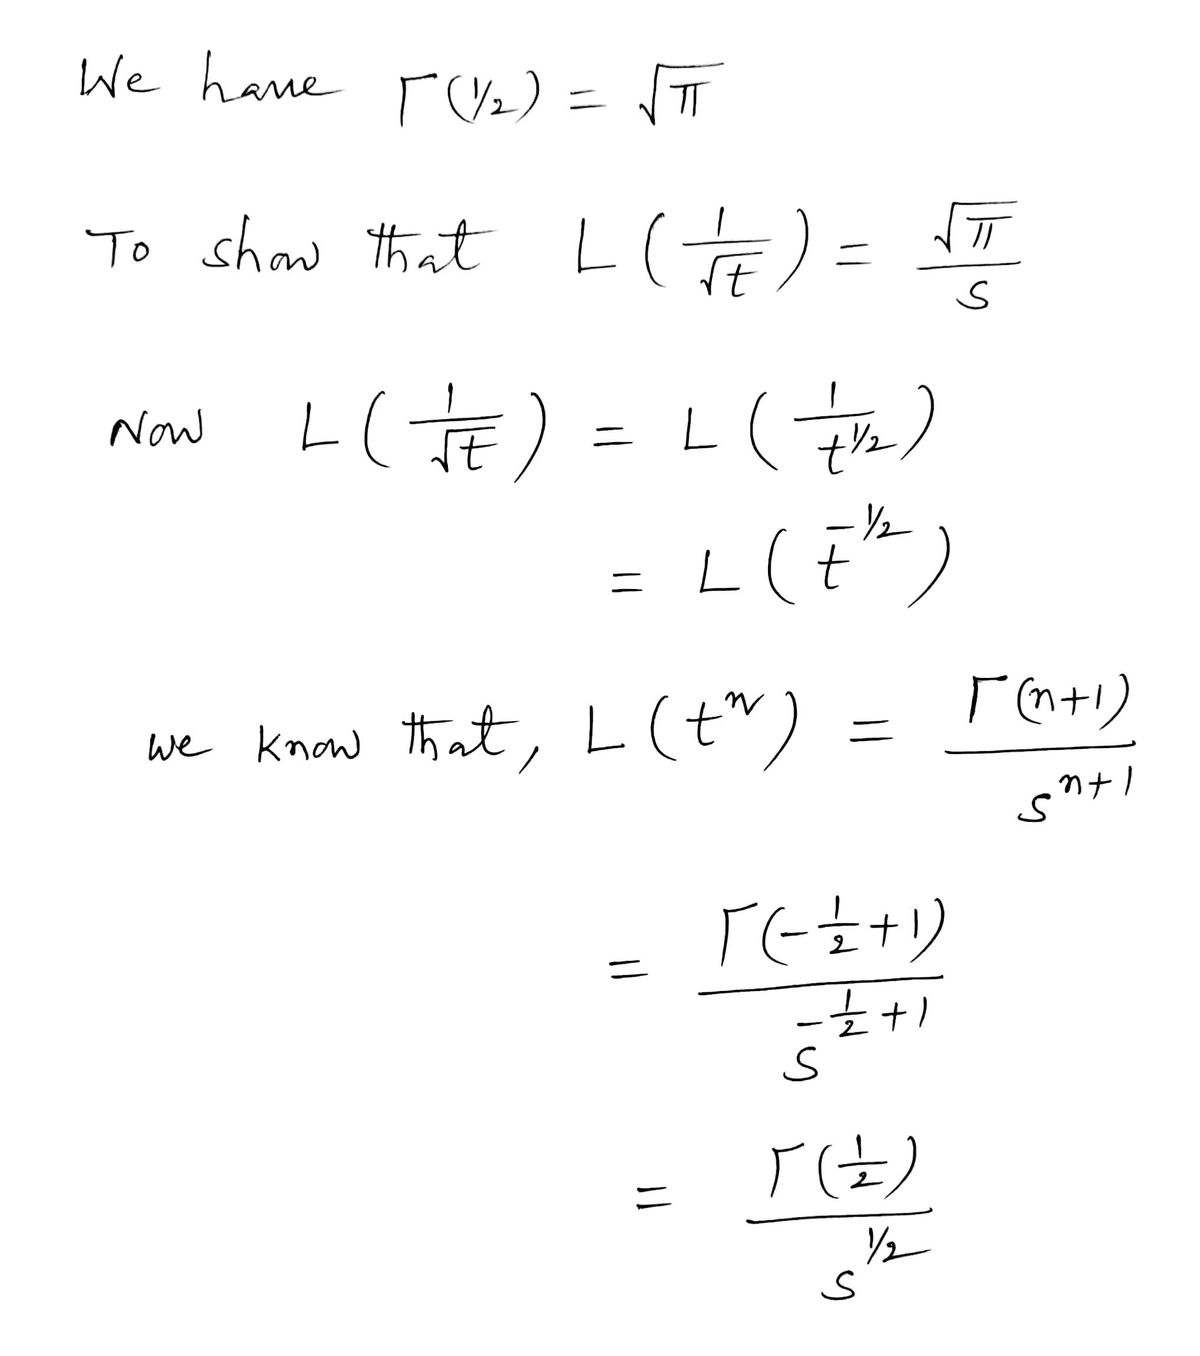 We have Γ(1/2) = √π
To show that L(1/√t) = √π/s
Now L(1/√t) = L(1/t^1/2)
= L(t^-1/2)
we know that, L(t^n) = Γ(n+1)/s^n+1
= Γ(-1/2+1)/s^-1/2+1
= Γ(1/2)/s^1/2